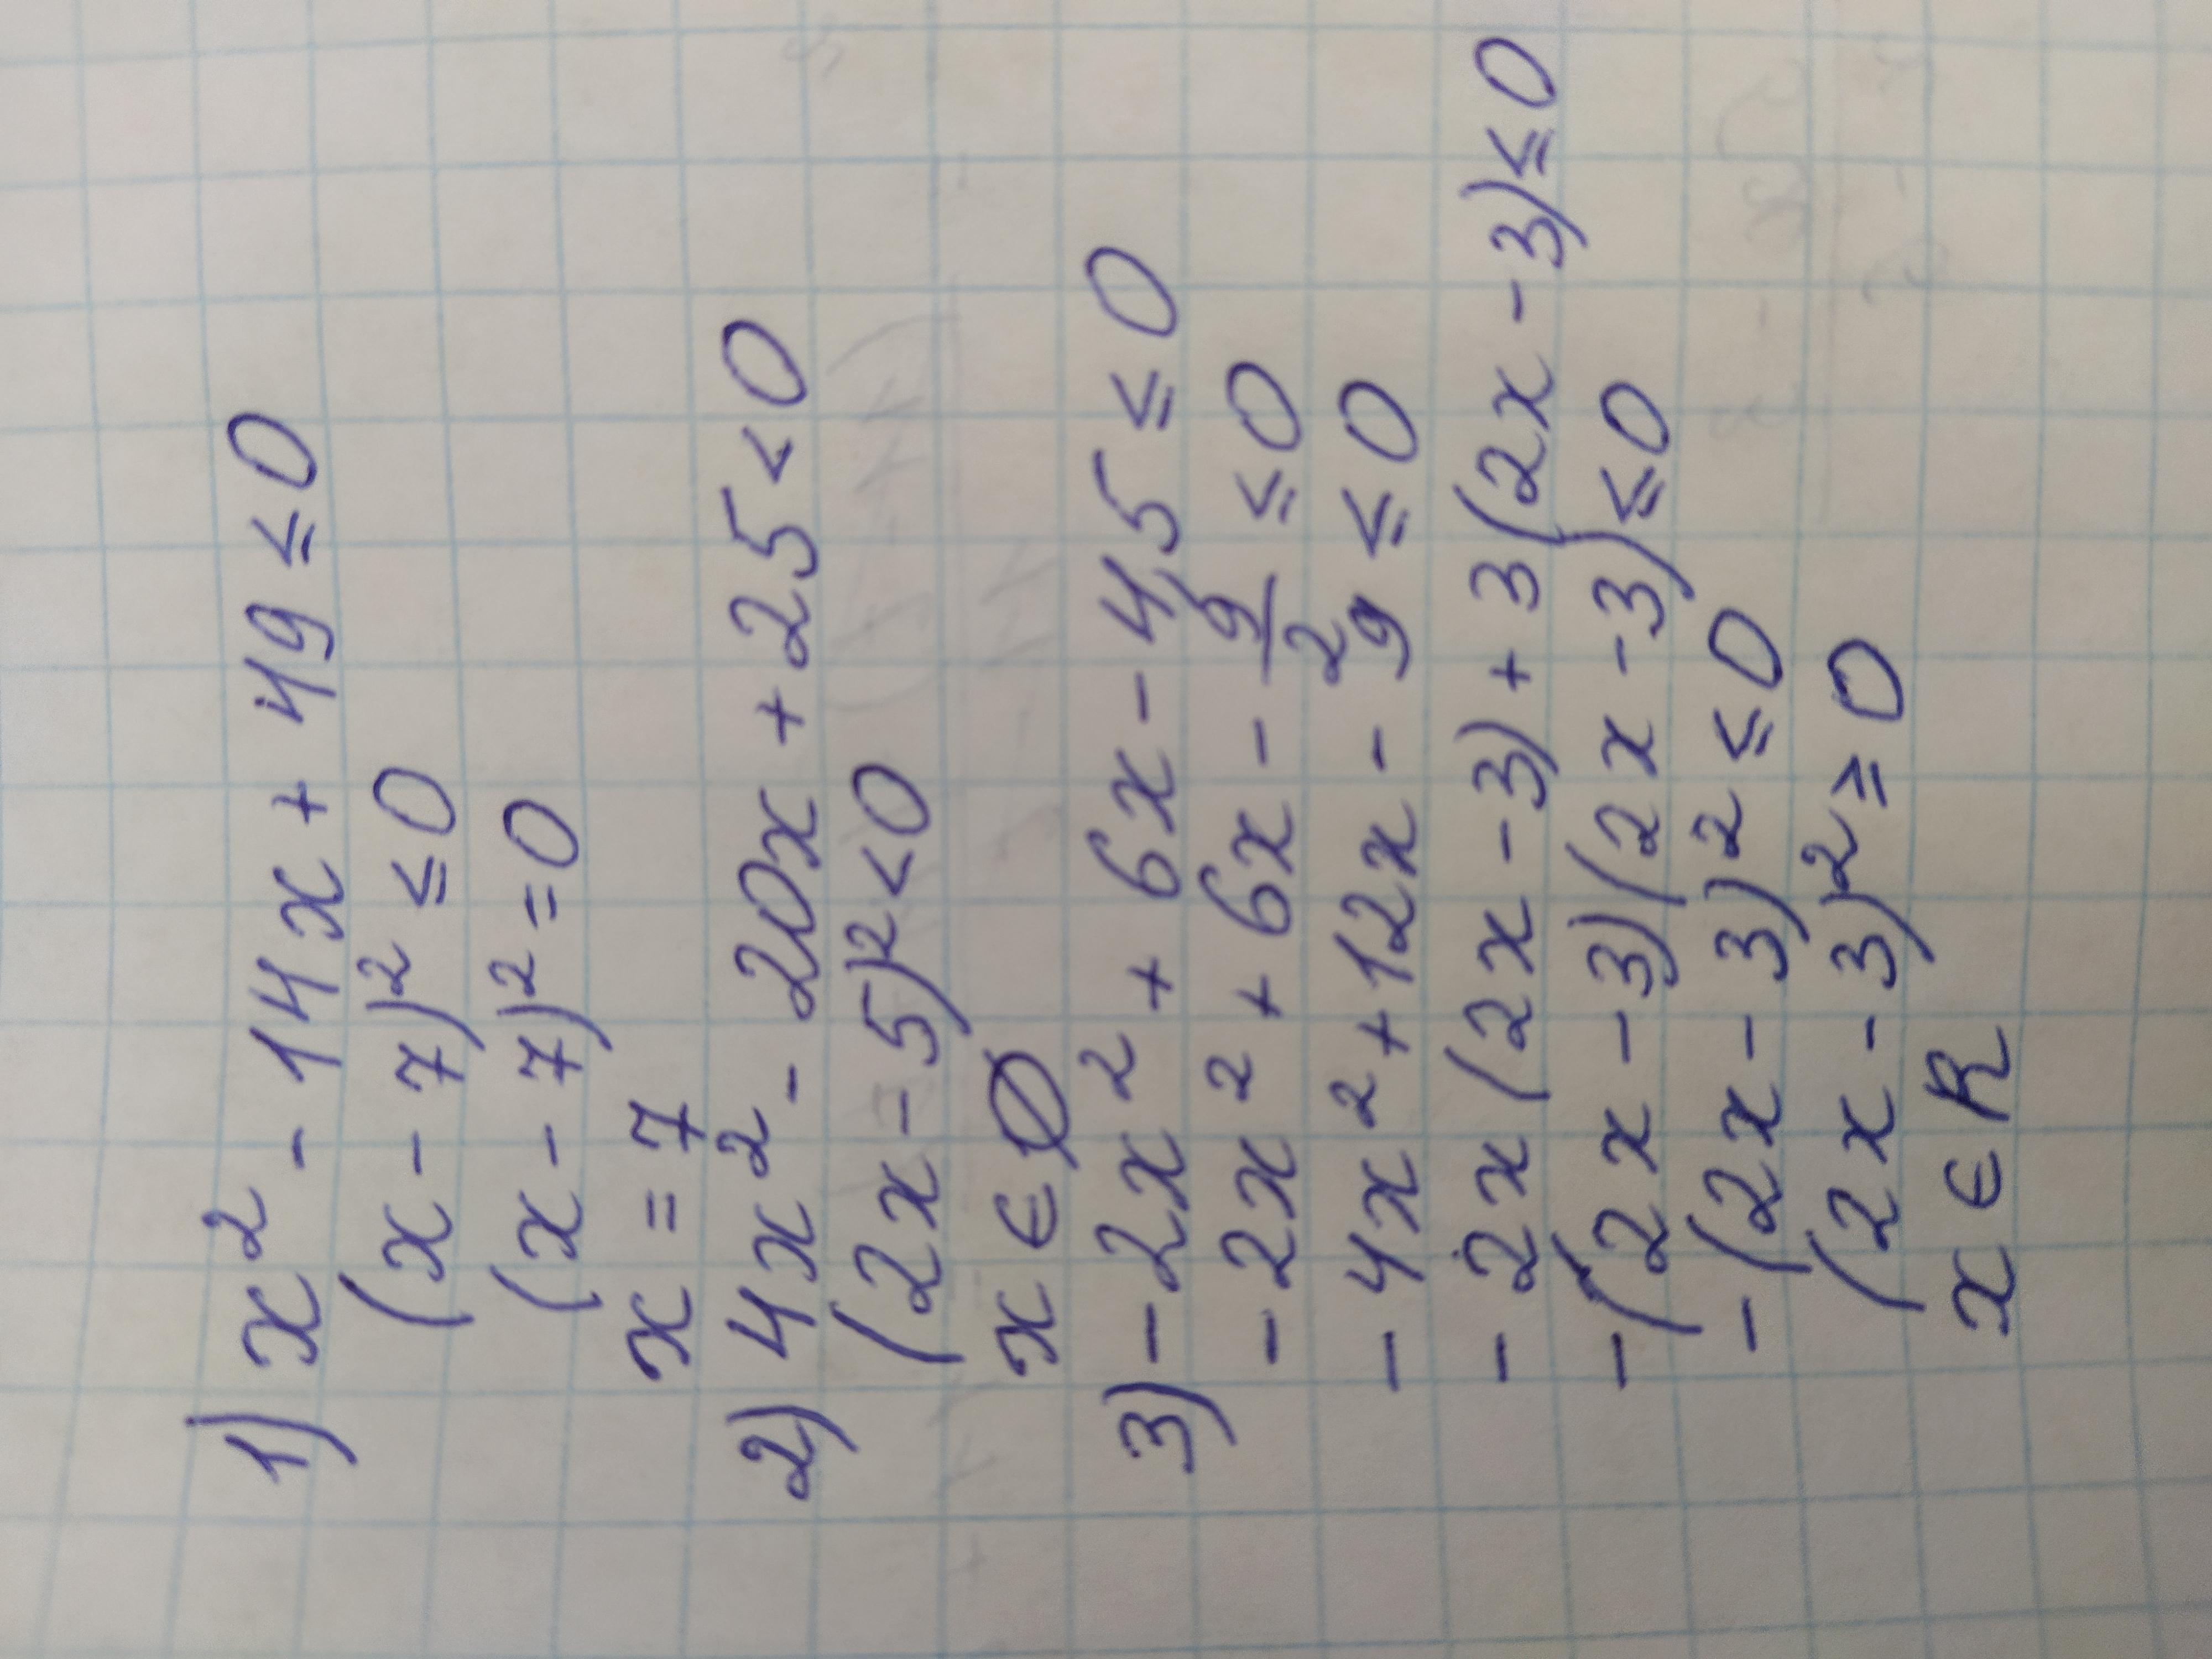 1) x² - 14x + 49 ≤ 0
(x - 7)² ≤ 0
(x - 7)² = 0
x = 7
2) 4x² - 20x + 25 < 0
(2x - 5)² < 0
x ∈ Ø
3) -2x² + 6x - 4,5 ≤ 0
-2x² + 6x - 9/2 ≤ 0
-4x² + 12x - 9 ≤ 0
-2x(2x - 3) + 3(2x - 3) ≤ 0
-(2x - 3)(2x - 3) ≤ 0
-(2x - 3)² ≤ 0
(2x - 3)² ≥ 0
x ∈ R